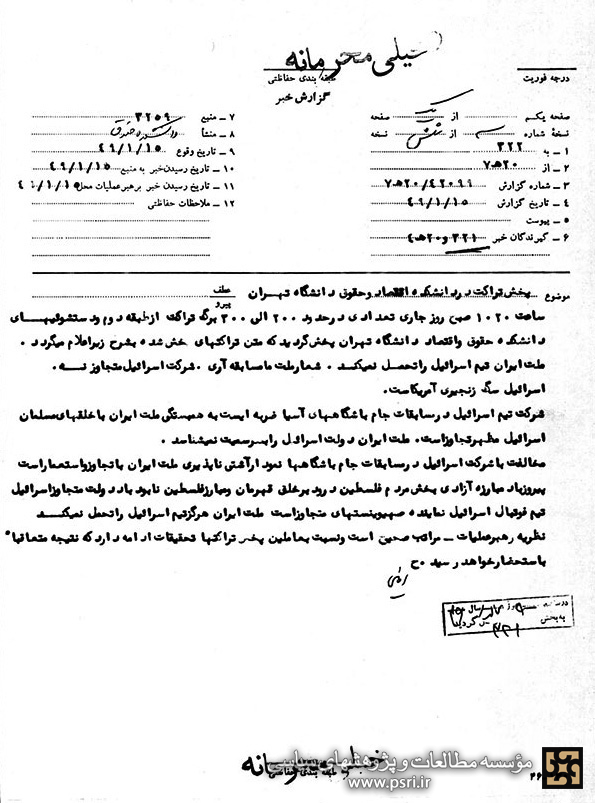 خیلی محرمانه
درجه فوریت
طبقه بندی حفاظتی
گزارش خبر
صفحه یکم از یک صفحه
نسخه شماره سه از شش نسخه
۱ – به ۳۲۲
۲ – از ۲۰ هـ۷
۳ – شماره گزارش ۲۰/۴۲۰۹۹ هـ۷
۴ – تاریخ گزارش ۴۹/۱/۱۵
۵ – پیوست
۶ – گیرندگان خبر ۳۲۱ و ۲۰ هـ۴
۷ – منبع ۳۲۵۹
۸ – منشأ دانشکده حقوق
۹ – تاریخ وقوع ۴۹/۱/۱۵
۱۰ – تاریخ رسیدن خبر به منبع ۴۹/۱/۱۵
۱۱ – تاریخ رسیدن خبر برهبر عملیات محل ۴۹/۱/۱۵
۱۲ – ملاحظات حفاظتی
موضوع پخش تراکت در دانشکده اقتصاد و حقوق دانشگاه تهران عطف
پیرو
ساعت ۱۰۲۰ صبح روز جاری تعدادی در حدود ۲۰۰ الی ۳۰۰ برگ تراکت از طبقه دوم و دستشوئیهای
دانشکده حقوق واقتصاد دانشگاه تهران پخش گردید که متن تراکتهای پخش شده بشرح زیر اعلام میگردد .
ملت ایران تیم اسرائیل را تحمل نمیکند . شعار ملت ما مسابقه آری . شرکت اسرائیل متجاوز نه .
اسرائیل سگ زنجیری آمریکاست .
شرکت تیم اسرائیل در مسابقات جام باشگاههای آسیا ضربه ایست به همبستگی ملت ایران با خلقهای مسلمان
اسرائیل مظهر تجاوز است . ملت ایران دولت اسرائیل را برسمیت نمیشناسد .
مخالفت با شرکت اسرائیل در مسابقات جام باشگاهها نمودار آشتی ناپذیری ملت ایران با تجاوز و استعمار است
پیروز باد مبارزه آزادی بخش مردم فلسطین درود بر خلق قهرمان و مبارز فلسطین نابود باد دولت متجاوز اسرائیل
تیم فوتبال اسرائیل نماینده صهیونیستهای متجاوز است ملت ایران هرگز تیم اسرائیل را تحمل نمیکند
نظریه رهبر عملیات – مراتب صحیح است ونسبت بعاملین پخش تراکتها تحقیقات ادامه دارد که نتیجه متعاقبا"
باستحضار خواهد رسید ح
روز
به بخش ۳۲۱ گردید
مؤسسه مطالعات و پژوهشهای سیاسی
خیلی محرمانه
طبقه بندی حفاظتی
www.psri.ir
۲۶